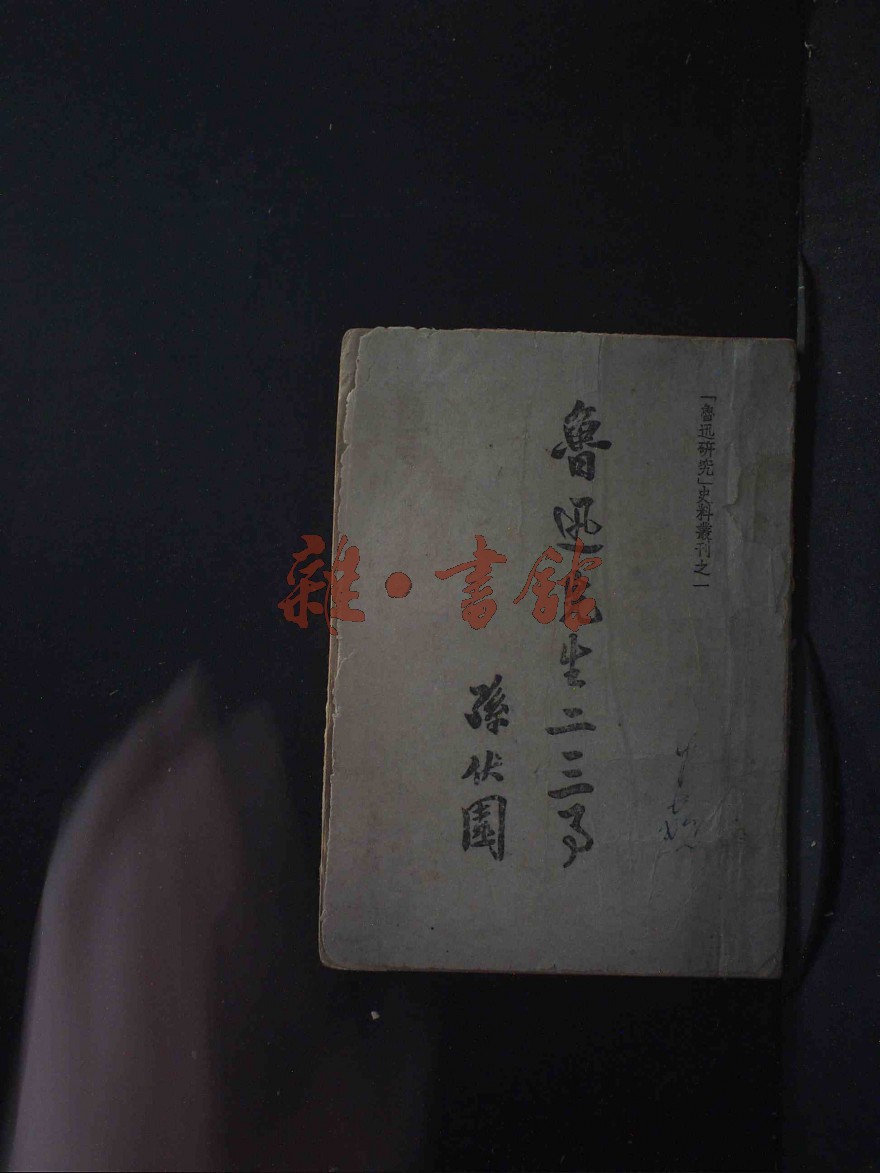 「魯迅研究」史料叢刊之一
魯迅先生二三事
孫伏園
雜·書館